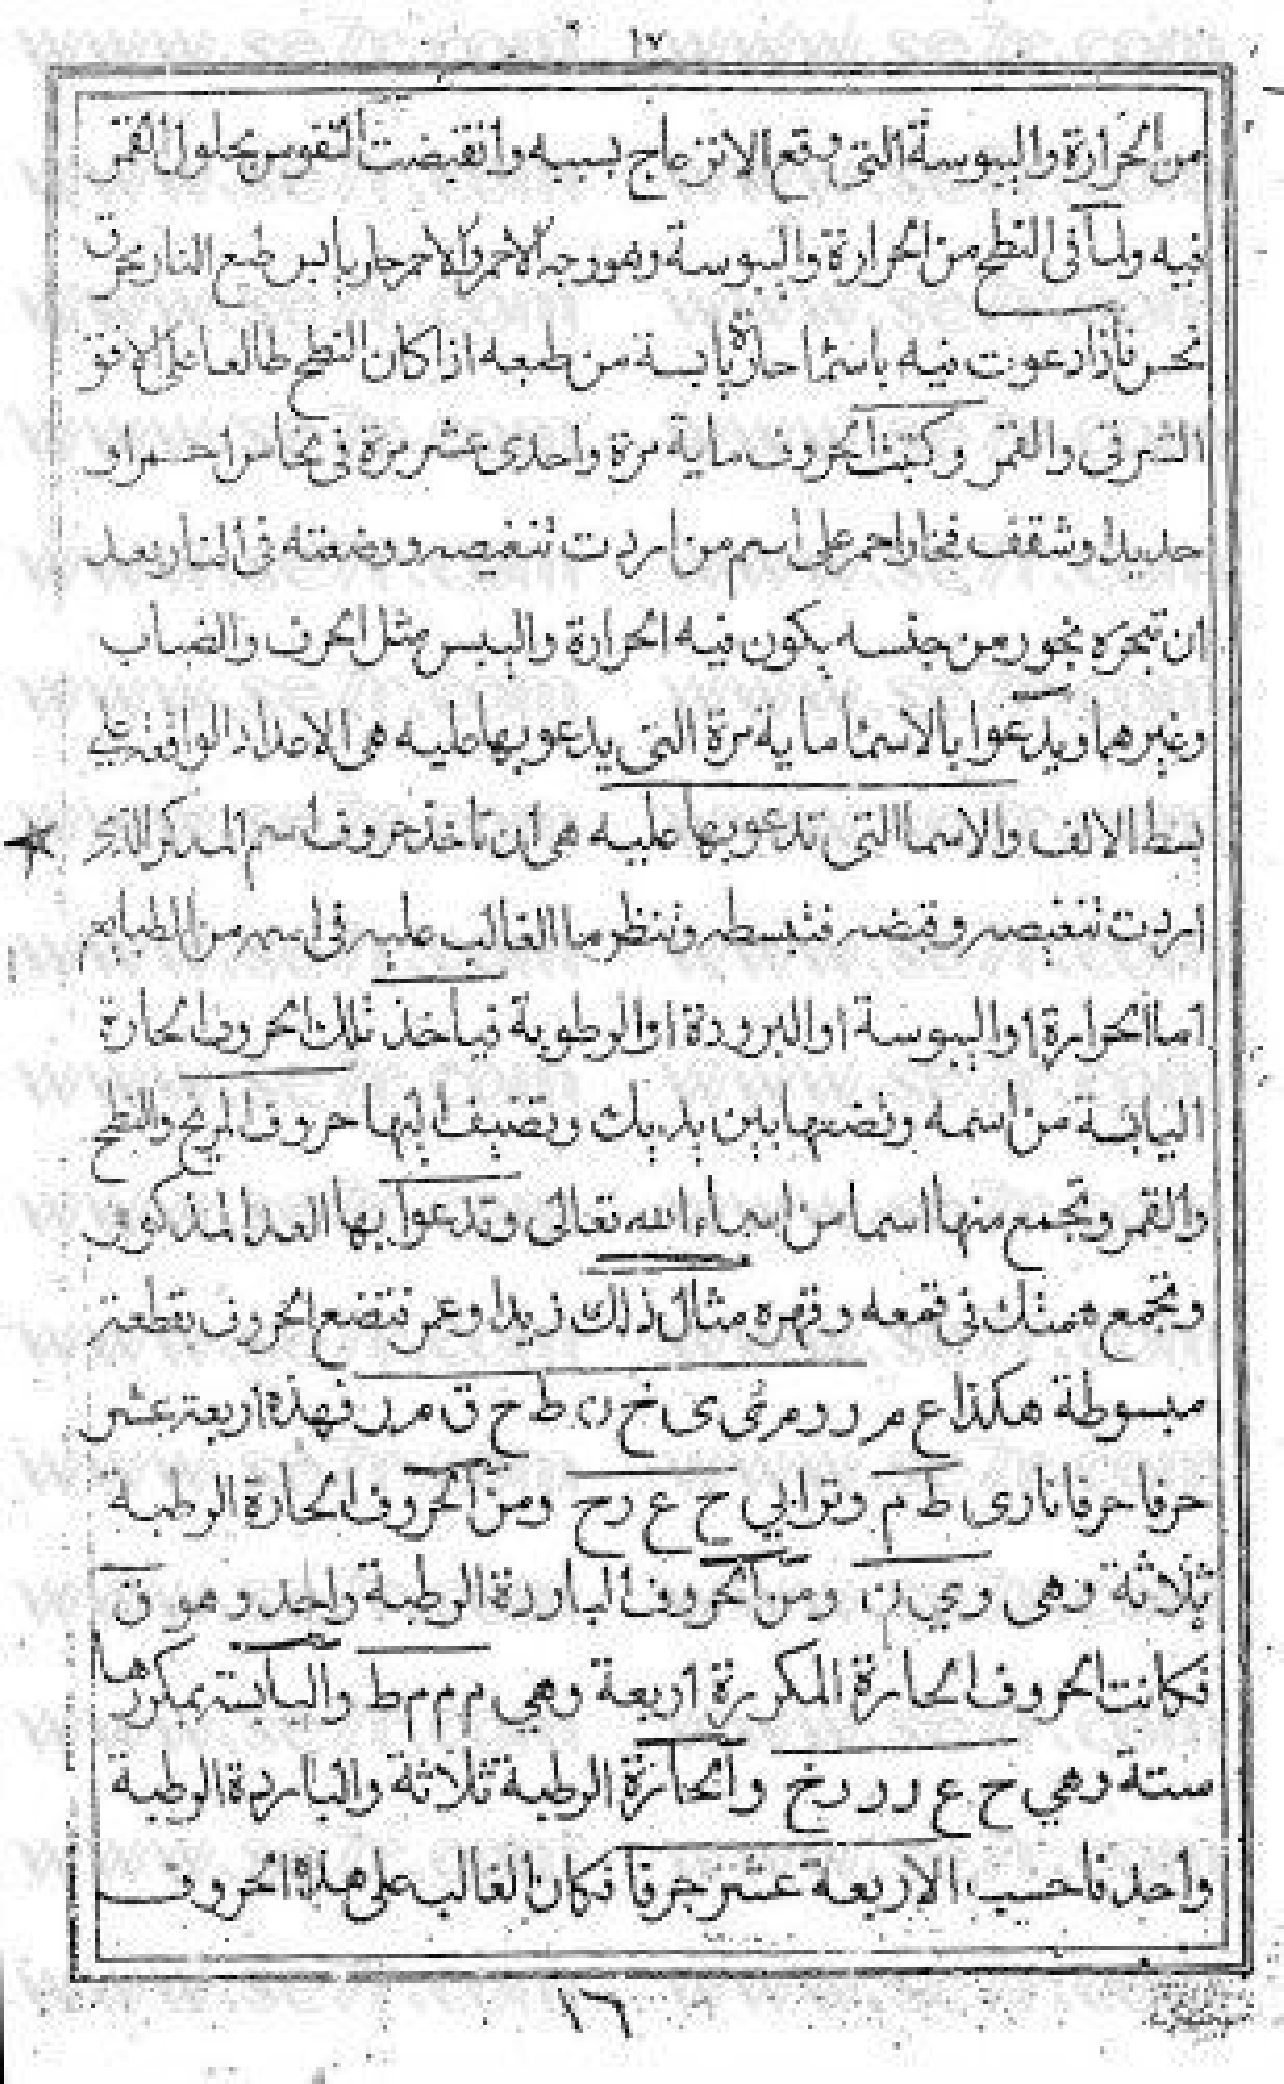 ١٧
من الحرارة واليبوسة التي يقع الانزعاج بسببه وانقبضت النفوس بحلول القمر
فيه ولما في النطح من الحرارة واليبوسة وهو وجه الاحمر والاحمر حار يابس طبع النار يحرق
نحس فأذا دعوت فيه باسما حارة يابسة من طبعه اذا كان النطح طالعا على الافق
الشرقى والقمر وكتبت الحروف ماية مرة واحدى عشر مرة في نحاس احمر او
حديد او شقف فخار احمر على اسم من اردت تنغيصه ووضعته في النار بعد
ان تبخره بخور من جنسه يكون فيه الحرارة واليبس مثل الحرف والضباب
وغيرهما ويدعوا بالاسما ماية مرة التى يدعو بها عليه هى الاعداد الواقعة على
بسط الالف والاسما التى تدعو بها عليه هى ان تأخذ حروف اسم المذكر الذى
اردت تنغيصه وقبضه فتبسطه وتنظر ما الغالب عليه فى اسمه من الطبايع
اما الحرارة او اليبوسة او البرودة او الرطوبة فيأخذ تلك الحروف الحارة
اليابسة من اسمه وتضعها بين يديك وتضيف اليها حروف المريخ والنطح
والقمر وتجمع منها اسما من اسماء الله تعالى وتدعوا بها العدد المذكور
وتجمع همتك فى قمعه وقهره مثال ذلك زيد او عمر فتضع الحروف بقطعة
مبسوطة هكذا ع م ر د م ى خ ن ط ح ق م ر فهذه اربعة عشر
حرفا حرفا نارى ط م وترابي ح ع ر خ ومن الحروف الحارة الرطبة
ثلاثة وهى و ي ن ومن الحروف الباردة الرطبة واحد وهو ق
فكانت الحروف الحارة المكررة اربعة وهي م م م ط واليابسة بمكررها
ستة وهي ح ع ر ر ر خ والحارة الرطبة ثلاثة والباردة الرطبة
واحد فاحسب الاربعة عشر حرفا فكان الغالب على هذه الحروف
١٦